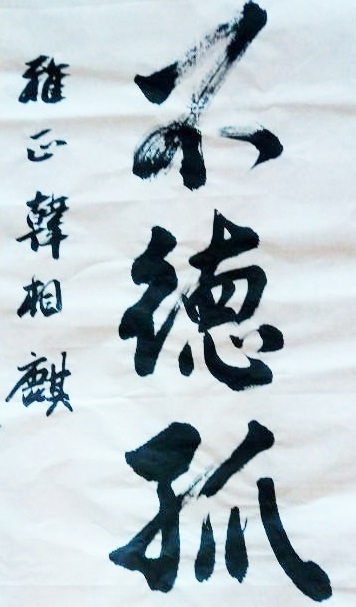 不德孤
雅正韓相麒